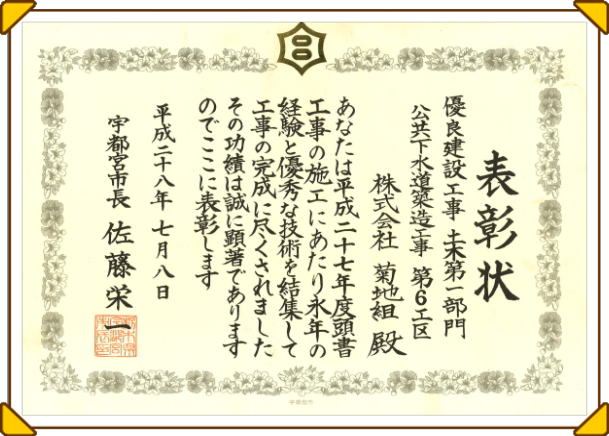 表彰状
優良建設工事 土木第一部門
公共下水道築造工事 第6工区
株式会社 菊地組 殿
あなたは平成二十七年度頭書
工事の施工にあたり永年の
経験と優秀な技術を結集して
工事の完成に尽くされました
その功績は誠に顕著であります
のでここに表彰します
平成二十八年七月八日
宇都宮市長 佐藤栄一
宇都宮市